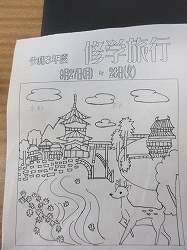 令和3年度
修学旅行
9月27日(月)～28日(火)